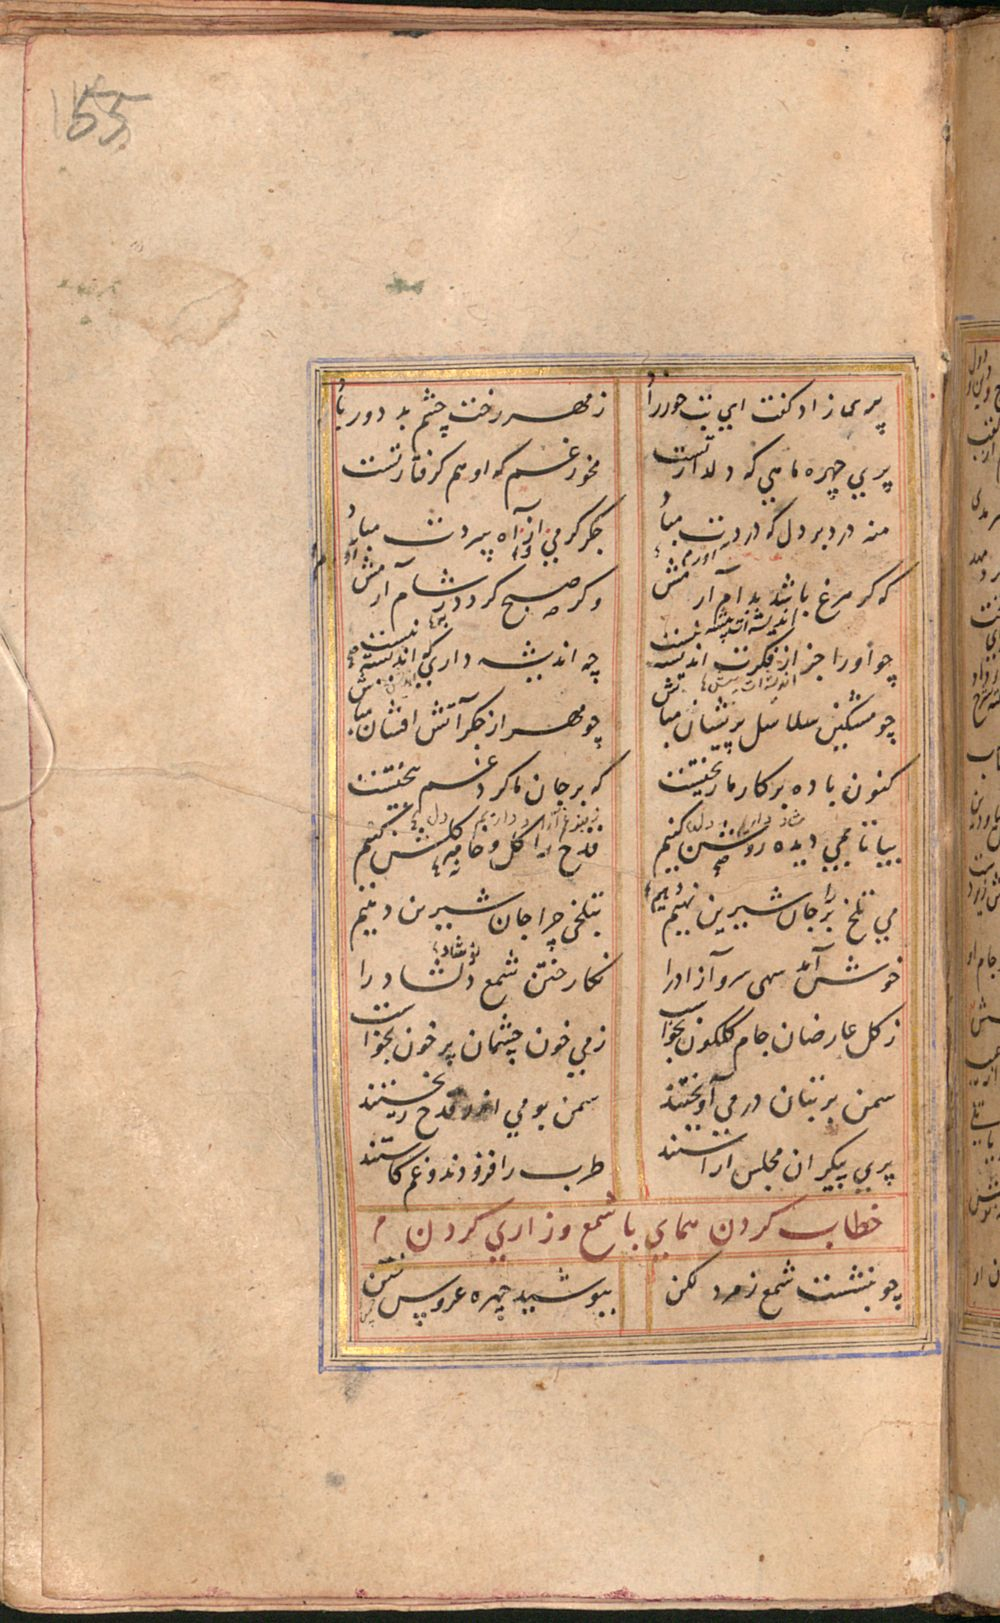 155
پری زاد کفت ای بت حورزاد
ز مهر رخت چشم بد دور باد
پری چهره ماهی که دلدار تست
مخور غم که او هم کرفتار تست
منه درد بر دل که دردت مباد
جکر کرمی از آه سردت مباد
که کر مرغ باشد بدام آرمش
وکر صبح کردد بشام آرمش
چو او را جز از فکرت اندیشه نیست
چه اندیشه داری که اندیشه نیست
چو مشکین سلاسل پریشان مباش
چو مهر از جکر آتش افشان مباش
کنون باده بر کار ما ریختیست
که بر جان ما کرد غم بیختیست
بیا تا بمی دیده روشن کنیم
قدح را کل و جام کلشن کنیم
می تلخ بر جان شیرین نهیم
بتلخی چرا جان شیرین دهیم
خوش آمد سهی سرو آزاد را
نکار ختن شمع دلشاد را
ز کل عارضان جام کلکون بخواست
ز می خون چشمان پر خون بخواست
سمن بر بتان در می آویختند
سمن بو می اندر قدح ریختند
پری پیکران مجلس آراستند
طرب را فزودند و غم کاستند
خطاب کردن همای با شمع وزاری کردن
چو بنشست شمع زمرد لکن
بپوشید چهره عروس ختن